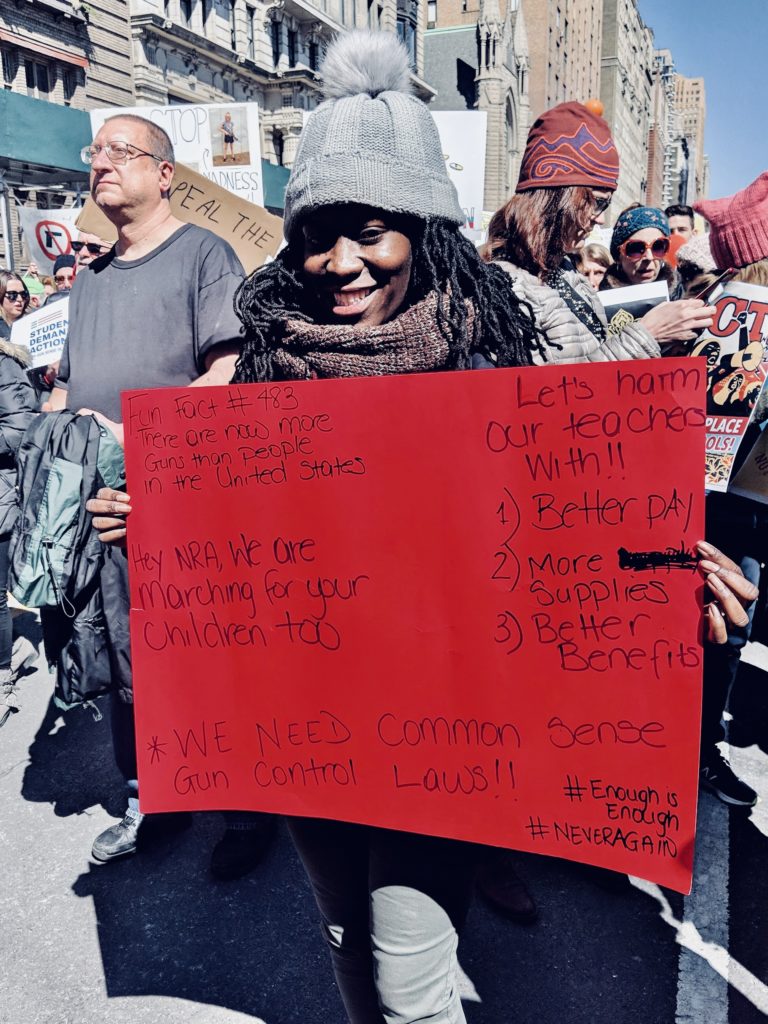 Fun Fact # 483
There are now more
Guns than people
in the United States
Hey NRA, We are
Marching for your
Children too
Let's harm
our teachers
With!!
1) Better PAY
2) More
Supplies
3) Better
Benefits
* WE NEED Common Sense
Gun Control Laws!!
#Enough is
Enough
#NEVERAGAIN
STOP
MADNESS
EPEAL THE
STUDEN
DEMAN
ACTION
CT
PLACE
OLS!